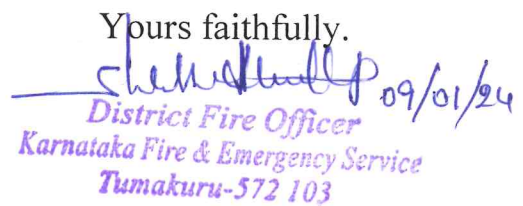 Yours faithfully.
09/01/24
District Fire Officer
Karnataka Fire & Emergency Service
Tumakuru-572 103